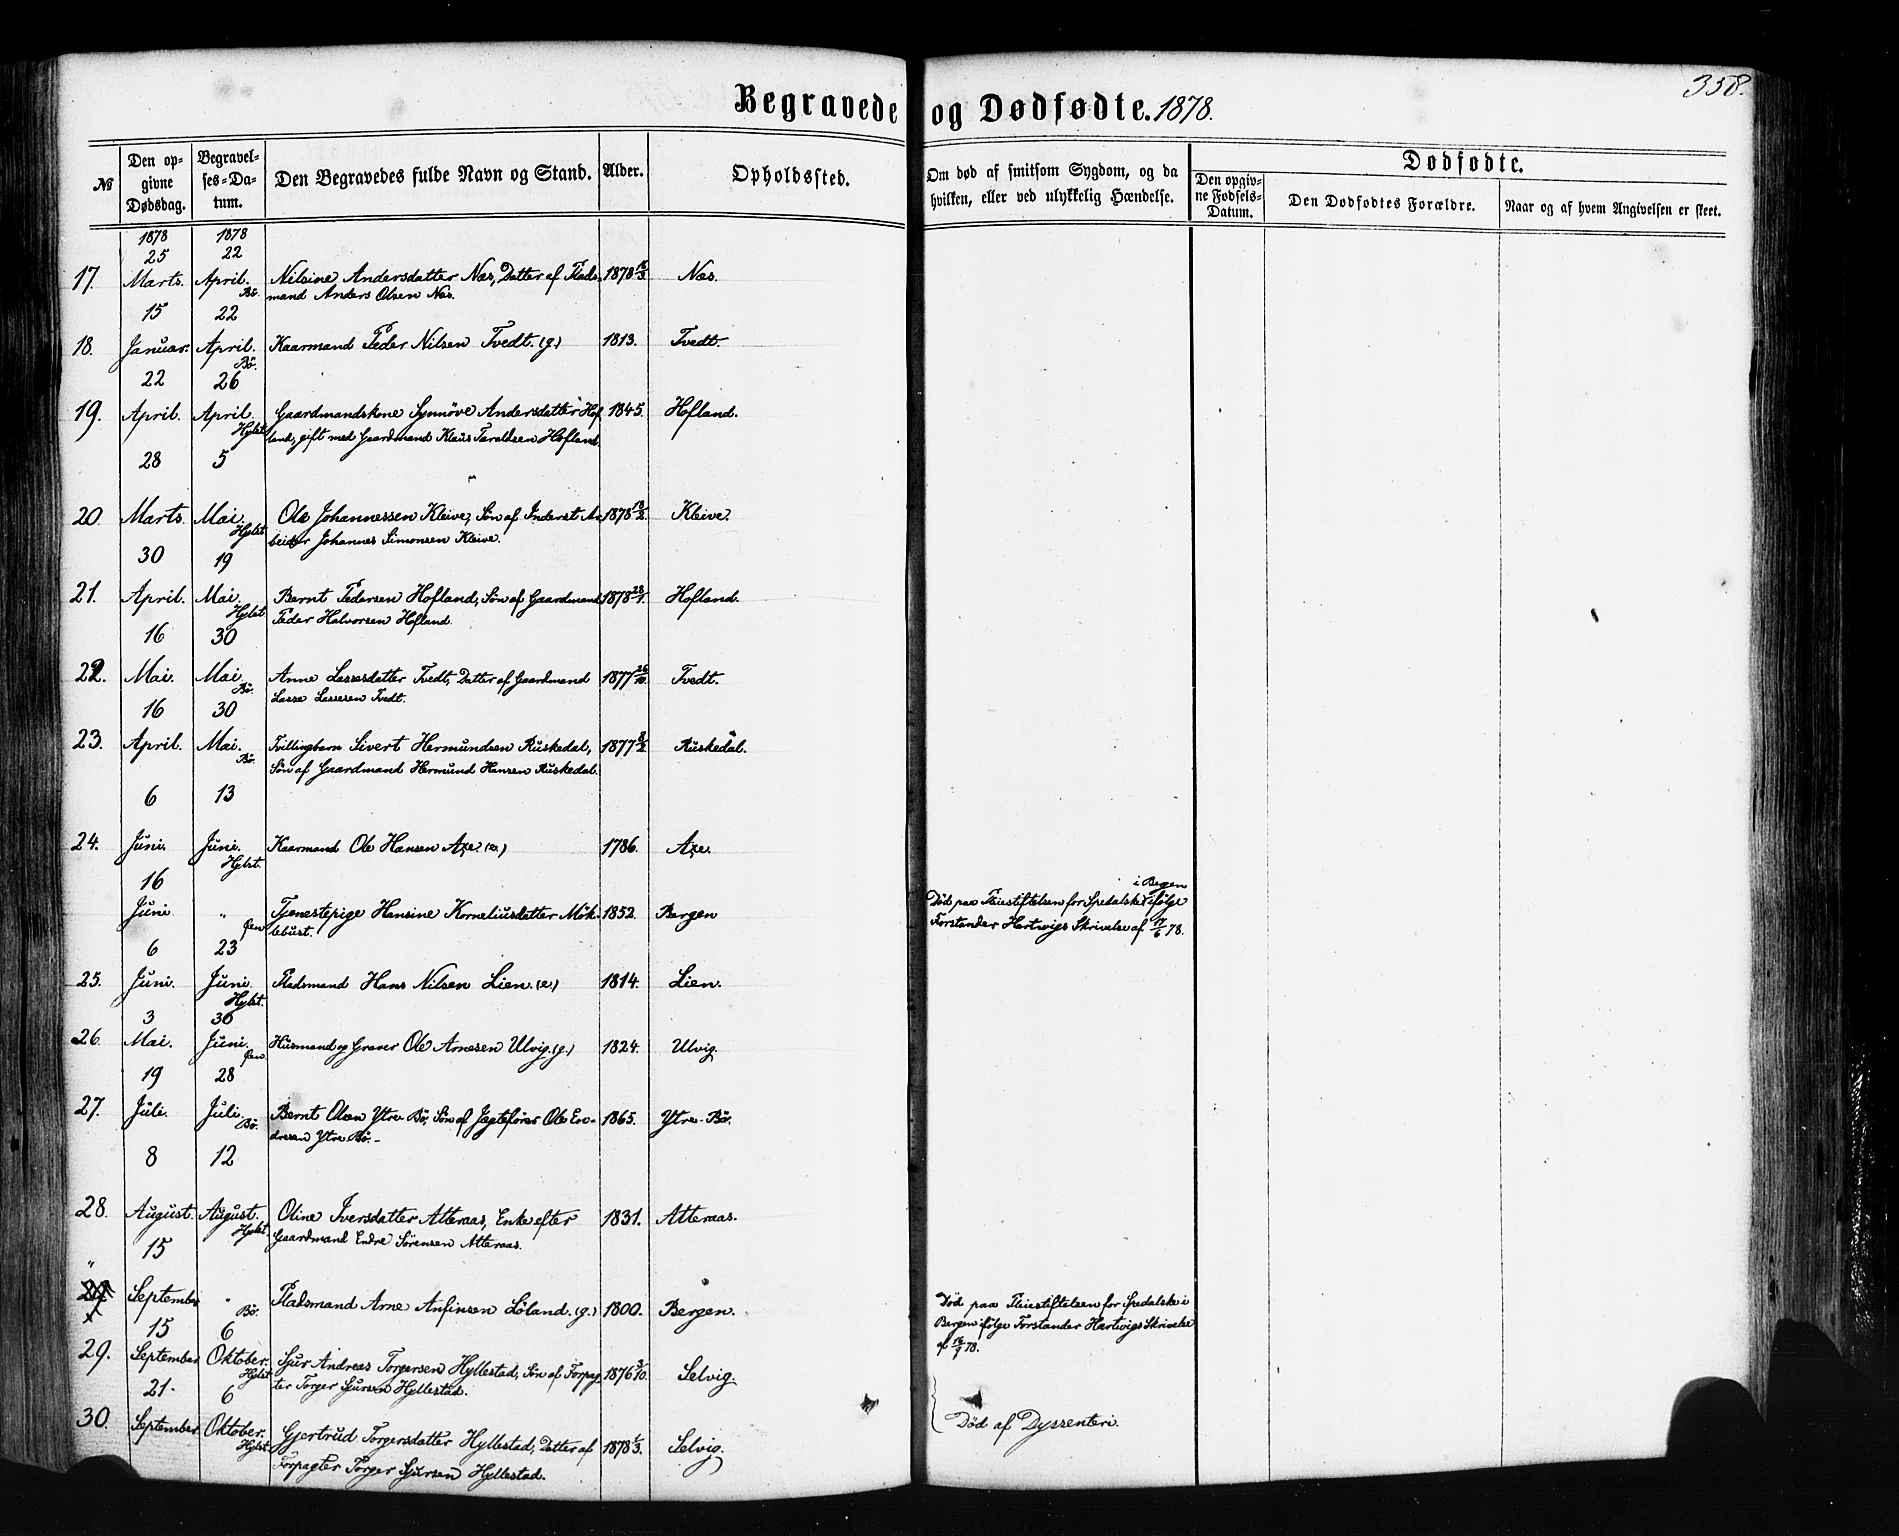 358.
Begravede og Dødfødte. 1878.
№
Den op-
givne
Dødsdag.
Begravel-
ses-Da-
tum.
Den Begravedes fulde Navn og Stand.
Alder.
Opholdssted.
Om død af smitsom Sygdom, og da
hvilken, eller ved ulykkelig Hændelse.
Dødfødte.
Den opgiv-
ne Fødsels-
Datum.
Den Dødfødtes Forældre.
Naar og af hvem Angivelsen er skeet.
1878 1878
25 22
17. Marts. April. Nilsine Andersdatter Næs, Datter af Plads- 1878 16/3. Næs.
Bö. mand Anders Olsen Næs.
15 22
18. Januar. April. Kaarmand Peder Nilsen Tvedt. (g.) 1813. Tvedt.
Bö.
22 26
19. April. April. Gaardmandskone Synnöve Andersdatter Hof 1845. Hofland.
Hylst. land, gift med Gaardmand Klaus Taraldsen Hofland.
28 5
20. Marts. Mai. Ole Johannessen Kleive, Sön af Inderst Ar 1878 18/2. Kleive.
Hylst. beider Johannes Simonsen Kleive.
30 19
21. April. Mai. Bernt Pedersen Hofland, Sön af Gaardmand 1878 28/1. Hofland.
Hylst. Peder Halvorsen Hofland.
16 30
22. Mai. Mai. Anne Lassesdatter Tvedt, Datter af Gaardmand 1877 26/10. Tvedt.
Bö. Lasse Lassesen Tvedt.
16 30
23. April. Mai. Tvillingbarn Sivert Hermundsen Ruskedal, 1877 8/2. Ruskedal.
Bö. Sön af Gaardmand Hermund Hansen Ruskedal.
6 13
24. Juni. Juni. Kaarmand Ole Hansen Axe. (e.) 1786. Axe.
Hylst.
16 i Bergen
Juni " Tjenestepige Hansine Korneliusdatter Mök- 1852. Bergen Död paa Pleiestiftelsen for Spedalske ifölge
lebust. Forstander Hartwigs Skrivelse af 17/6 78.
6 23
25. Juni. Juni. Pladsmand Hans Nilsen Lien. (e.) 1814. Lien.
Hylst.
3 30
26. Mai. Juni. Husmand og Graver Ole Arnesen Ulvig. (g.) 1824. Ulvig.
19 28
27. Juli. Juli. Bernt Olsen Ytre Bö, Sön af Jægtefører Ole En- 1865. Ytre-Bö.
Bö. dresen Ytre Bö.-
8 12
28. August. August. Oline Iversdatter Atteraas, Enke efter 1831. Atteraas.
Hylst. Gaardmand Endre Sörensen Atteraas.
15
"
29. September " Pladsmand Arne Anfinsen Löland. (g.) 1800. Bergen. Död paa Pleiestiftelsen for Spedalske i
Bö. Bergen ifölge Forstander Hartwigs Skrivelse
15 6 af 16/9 78.
29. September. Oktober. Sjur Andreas Torgersen Hyllestad, Sön af Forpag- 1876 3/10. Selvig.
Hylst. ter Torger Sjursen Hyllestad.
21. 6
30. September. Oktober. Gjertrud Torgersdatter Hyllestad, Datter af 1878 1/3. Selvig. Död af Dyssenteri.
Hylst. Forpagter Torger Sjursen Hyllestad.